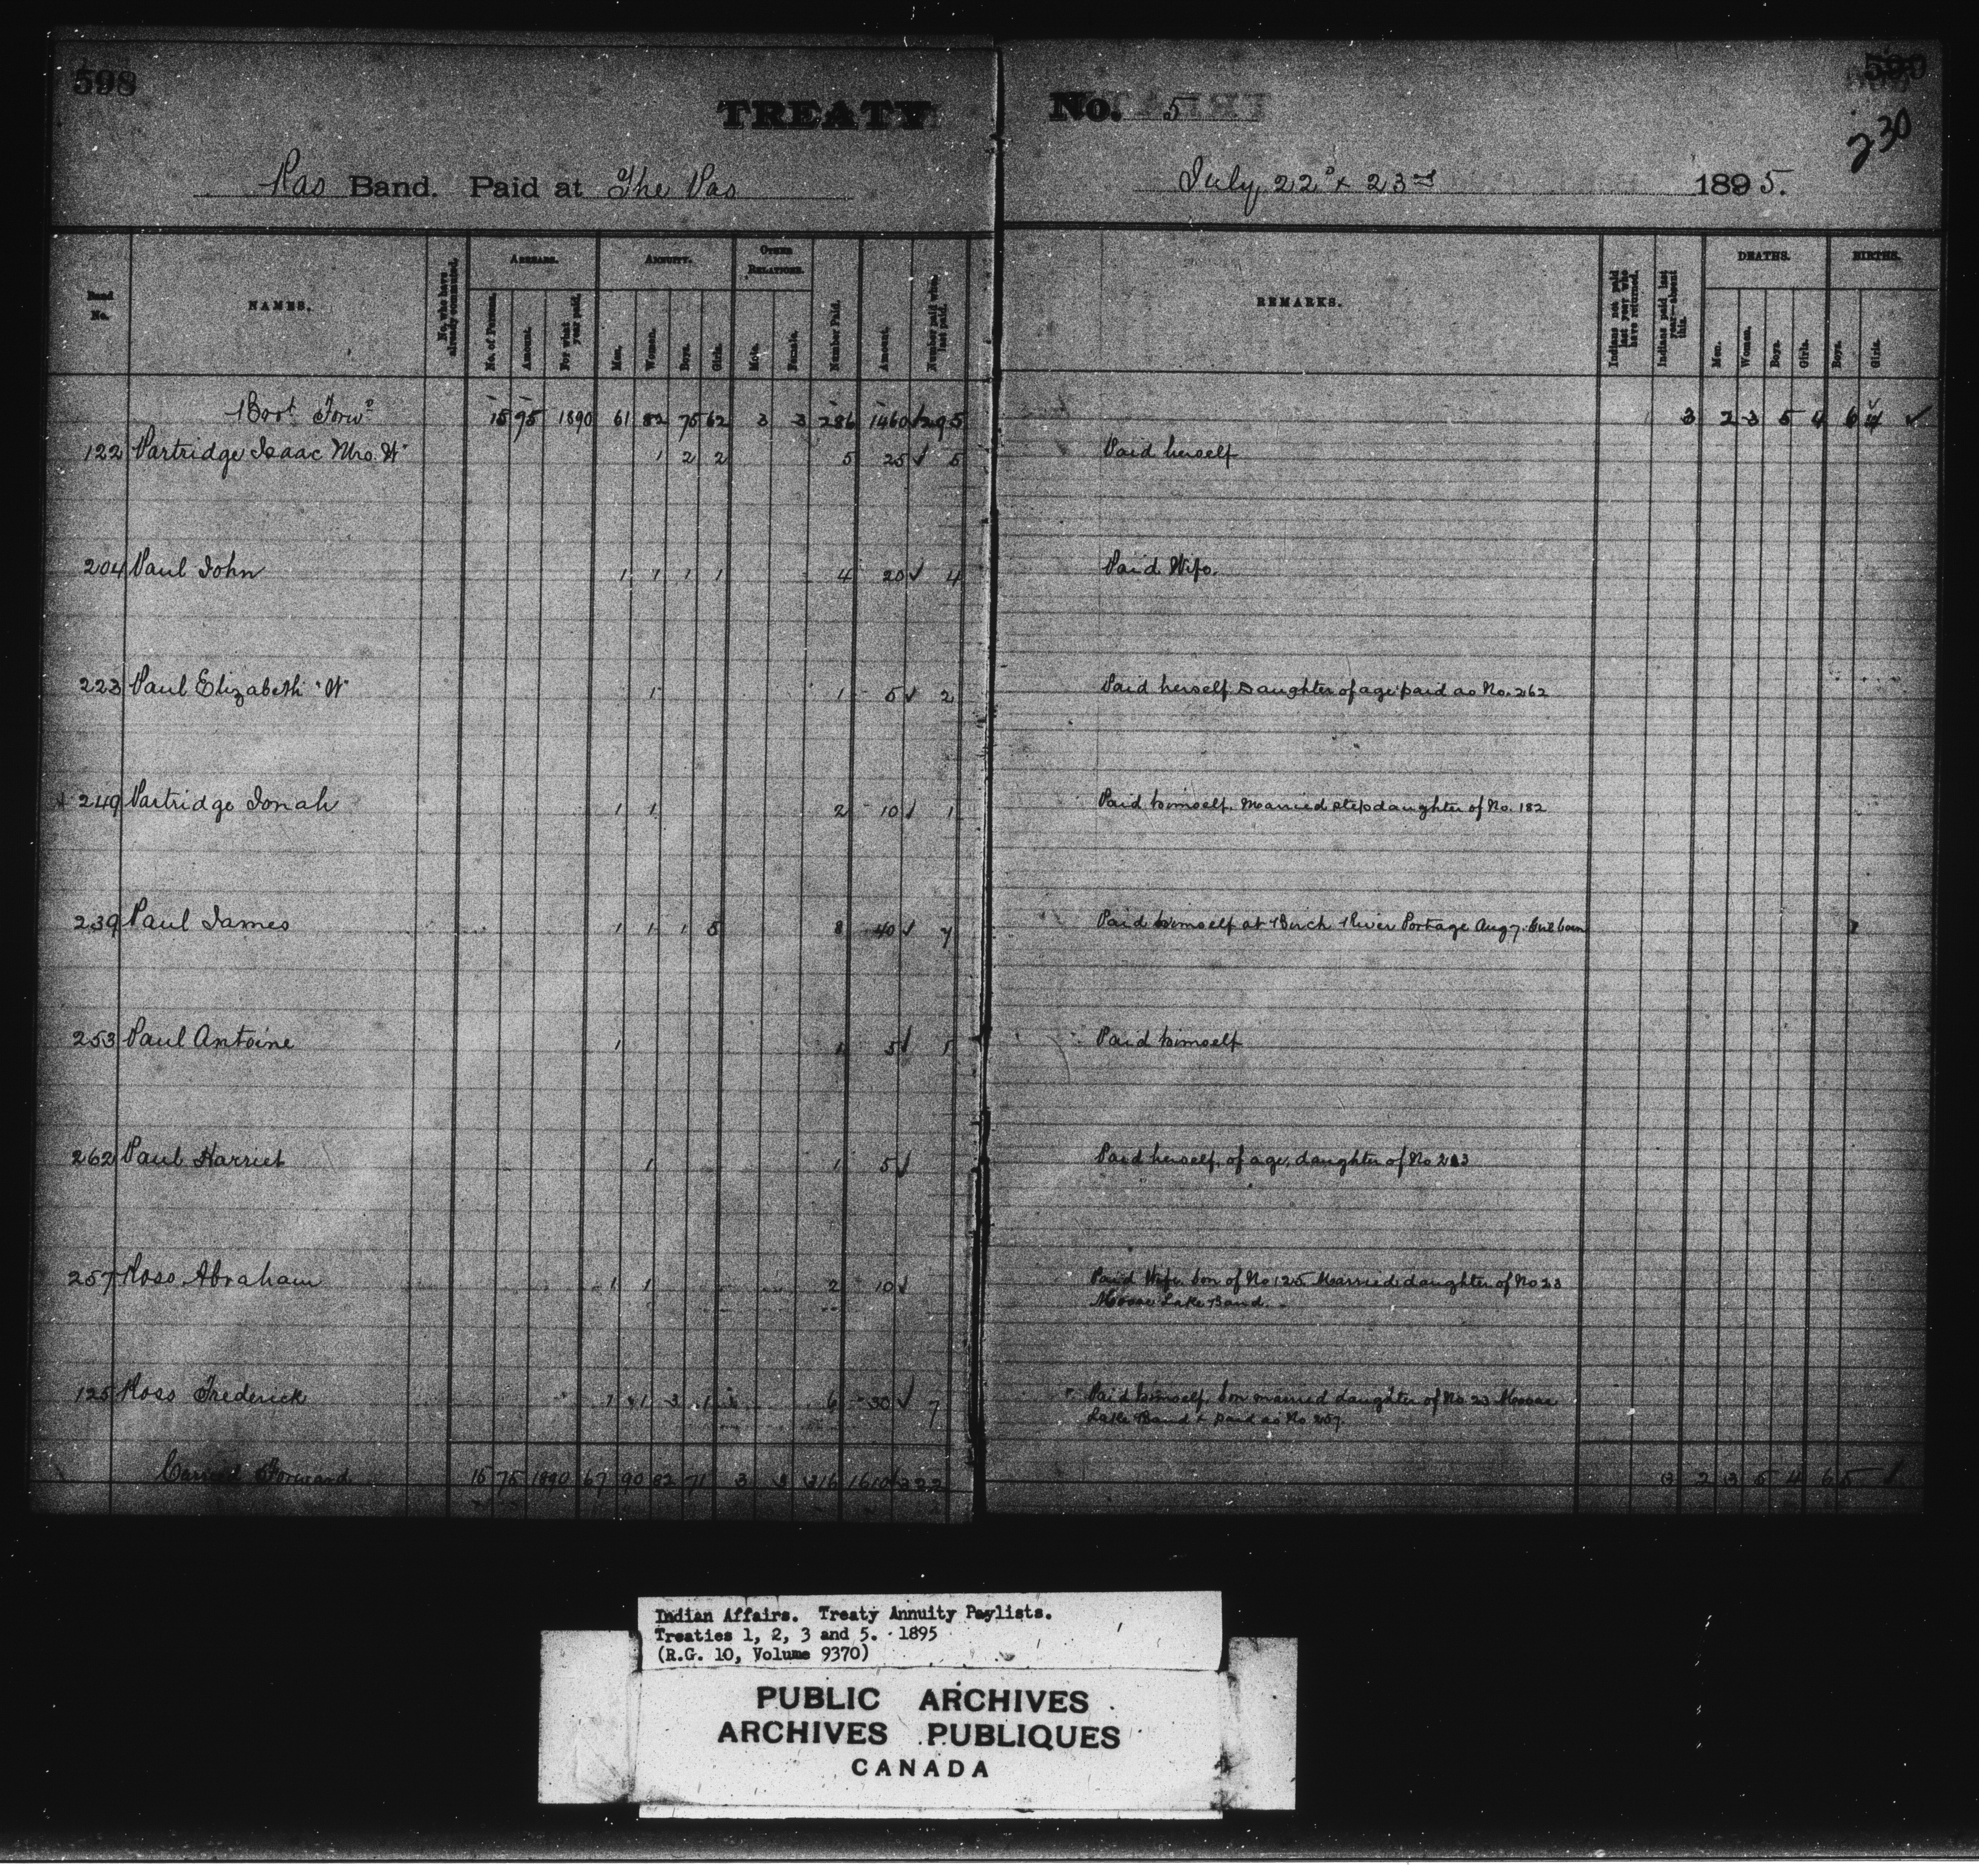 598
TREATY No. 5
230
Pas Band. Paid at The Pas July 22d & 23rd 1895.
Band No.
NAMES.
No. who have already commuted.
ARREARS.
No. of Persons.
Amount.
For what year paid.
ANNUITY.
Men.
Women.
Boys.
Girls.
OTHER RELATIONS.
Male.
Female.
Number Paid.
Amount.
Number paid when last paid.
REMARKS.
Indians not paid last year who have returned.
Indians paid last year—absent this.
DEATHS.
Men.
Women.
Boys.
Girls.
BIRTHS.
Boys.
Girls.
Brot Forwd 15 75 1890 61 82 75 62 3 3 286 1460 ✓ 295 3 2 3 5 4 6 4 ✓
122 Partridge Isaac Mrs. W 1 2 2 5 25 ✓ 5 Paid herself
204 Paul John 1 1 1 1 4 20 ✓ 4 Paid Wife.
223 Paul Elizabeth "W" 1 1 5 ✓ 2 Paid herself. Daughter of age paid as No. 262
249 Partridge Jonah 1 1 2 10 ✓ 1 Paid himself. Married stepdaughter of No. 182
239 Paul James 1 1 1 5 8 40 ✓ 7 Paid himself at Birch River Portage Aug 7. Girl born
253 Paul Antoine 1 1 5 ✓ 1 Paid himself
262 Paul Harriet 1 1 5 ✓ Paid herself, of age, daughter of No 223
257 Ross Abraham 1 1 2 10 ✓ Paid Wife. Son of No 125. Married daughter of No 23
Moose Lake Band.
125 Ross Frederick 1 1 3 1 6 30 ✓ 7 Paid himself. Son married daughter of No 23 Moose
Lake Band & paid as No 257.
Carried Forward 15 75 1890 67 90 82 71 3 3 316 1610 ✓ 322 3 2 3 5 4 6 5 ✓
Indian Affairs. Treaty Annuity Paylists.
Treaties 1, 2, 3 and 5. 1895
(R.G. 10, Volume 9370)
PUBLIC ARCHIVES
ARCHIVES PUBLIQUES
CANADA